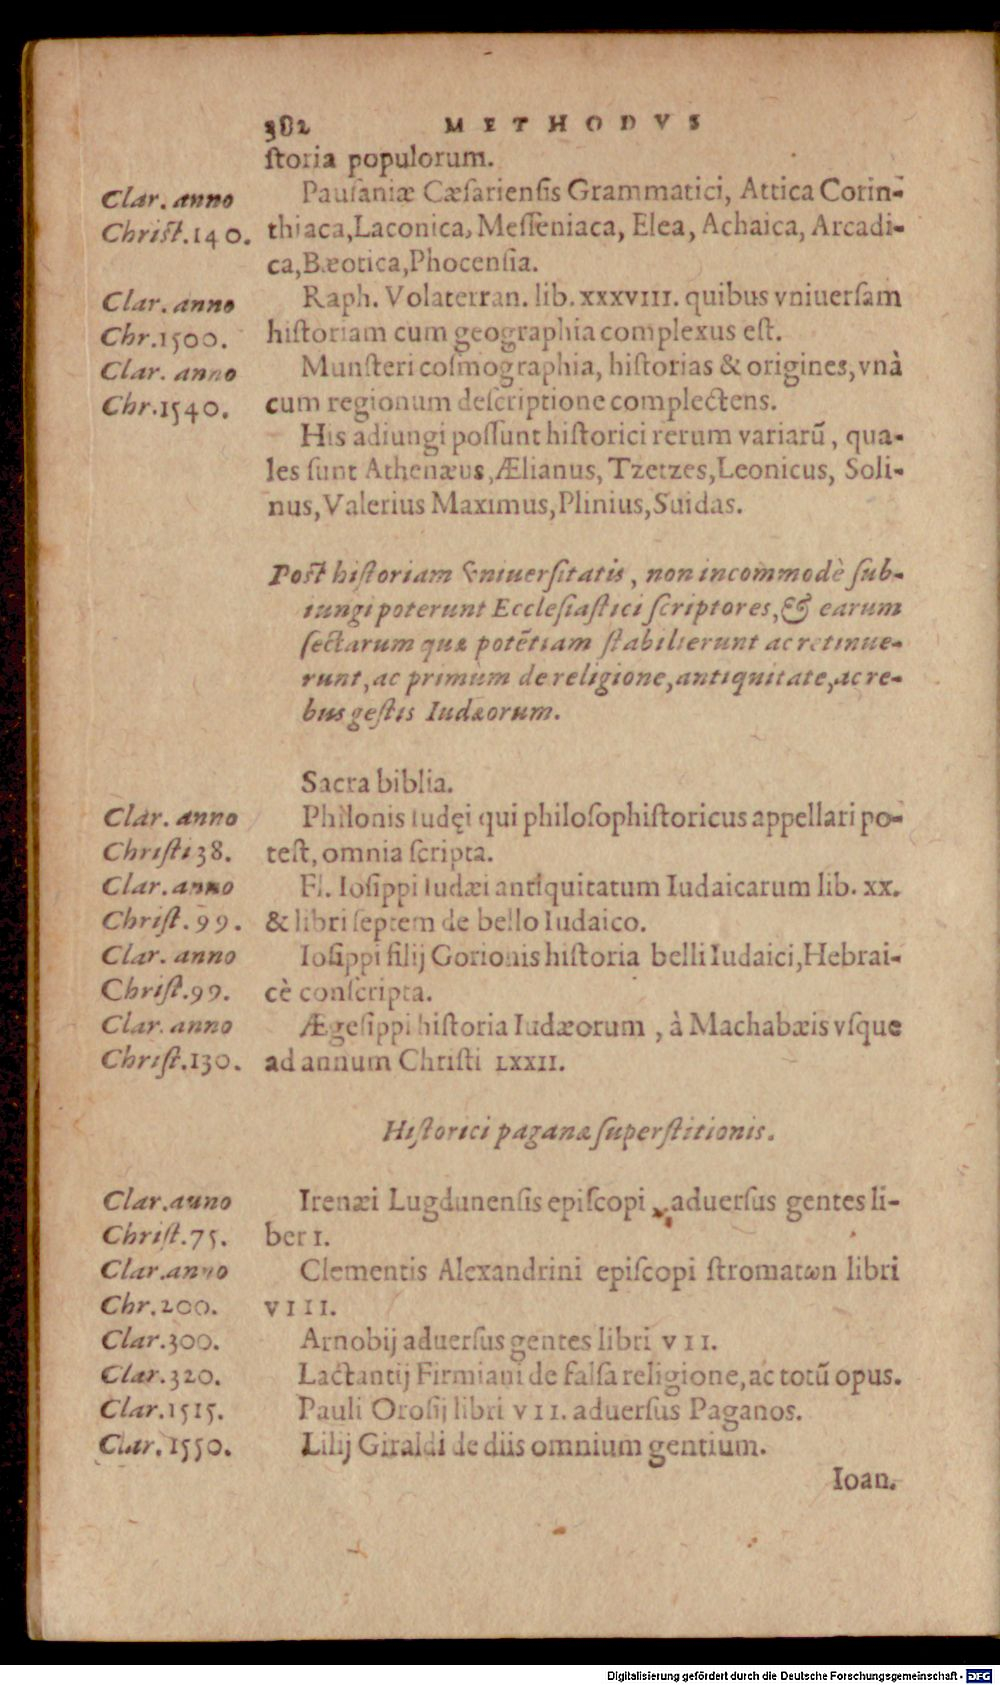 382 METHODVS
ſtoria populorum.
Clar. anno Pauſaniæ Cæſarienſis Grammatici, Attica Corin-
Chriſt.140. thiaca,Laconica,Meſſeniaca, Elea, Achaica, Arcadi-
ca,Bæotica,Phocenſia.
Clar. anno Raph. Volaterran. lib. XXXVIII. quibus vniuerſam
Chr.1500. hiſtoriam cum geographia complexus eſt.
Clar. anno Munſteri coſmographia, hiſtorias & origines, vnà
Chr.1540. cum regionum deſcriptione complectens.
His adiungi poſſunt hiſtorici rerum variarũ, qua-
les ſunt Athenæus,Ælianus, Tzetzes,Leonicus, Soli-
nus,Valerius Maximus,Plinius,Suidas.
Poſt hiſtoriam vniuerſitatis, non incommodè ſub-
iungi poterunt Eccleſiaſtici ſcriptores,& earum
ſectarum quæ potẽtiam ſtabilierunt ac retinue-
runt,ac primùm de religione,antiquitate,ac re-
bus geſtis Iudæorum.
Sacra biblia.
Clar. anno Philonis Iudęi qui philoſophiſtoricus appellari po-
Chriſti 38. teſt, omnia ſcripta.
Clar. anno Fl. Ioſippi Iudæi antiquitatum Iudaicarum lib. XX.
Chriſt.99. & libri ſeptem de bello Iudaico.
Clar. anno Ioſippi filij Gorionis hiſtoria belli Iudaici,Hebrai-
Chriſt.99. cè conſcripta.
Clar. anno Ægeſippi hiſtoria Iudæorum, à Machabæis vſque
Chriſt.130. ad annum Chriſti LXXII.
Hiſtorici paganæ ſuperſtitionis.
Clar. auno Irenæi Lugdunenſis epiſcopi, aduerſus gentes li-
Chriſt.75. ber I.
Clar. anno Clementis Alexandrini epiſcopi ſtromatωn libri
Chr.200. VIII.
Clar.300. Arnobij aduerſus gentes libri VII.
Clar.320. Lactantij Firmiani de falſa religione,ac totũ opus.
Clar.1515. Pauli Oroſij libri VII. aduerſus Paganos.
Clar. 1550. Lilij Giraldi de diis omnium gentium.
Ioan.
Digitalisierung gefördert durch die Deutsche Forschungsgemeinschaft - DFG